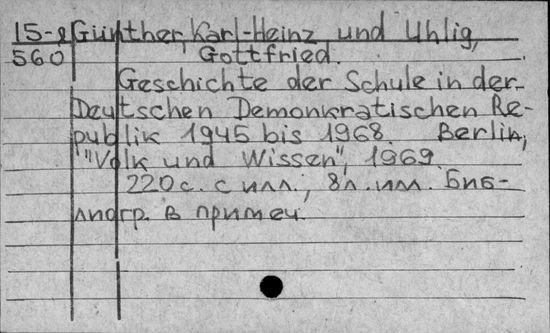 15-8 Günther, Karl-Heinz und Uhlig,
560 Gottfried.
Geschichte der Schule in der
Deutschen Demonkratischen Re-
publik 1945 bis 1968. Berlin,
"Volk und Wissen", 1969.
220 с. с илл., 8л. илл. Биб-
лиогр. в примеч.